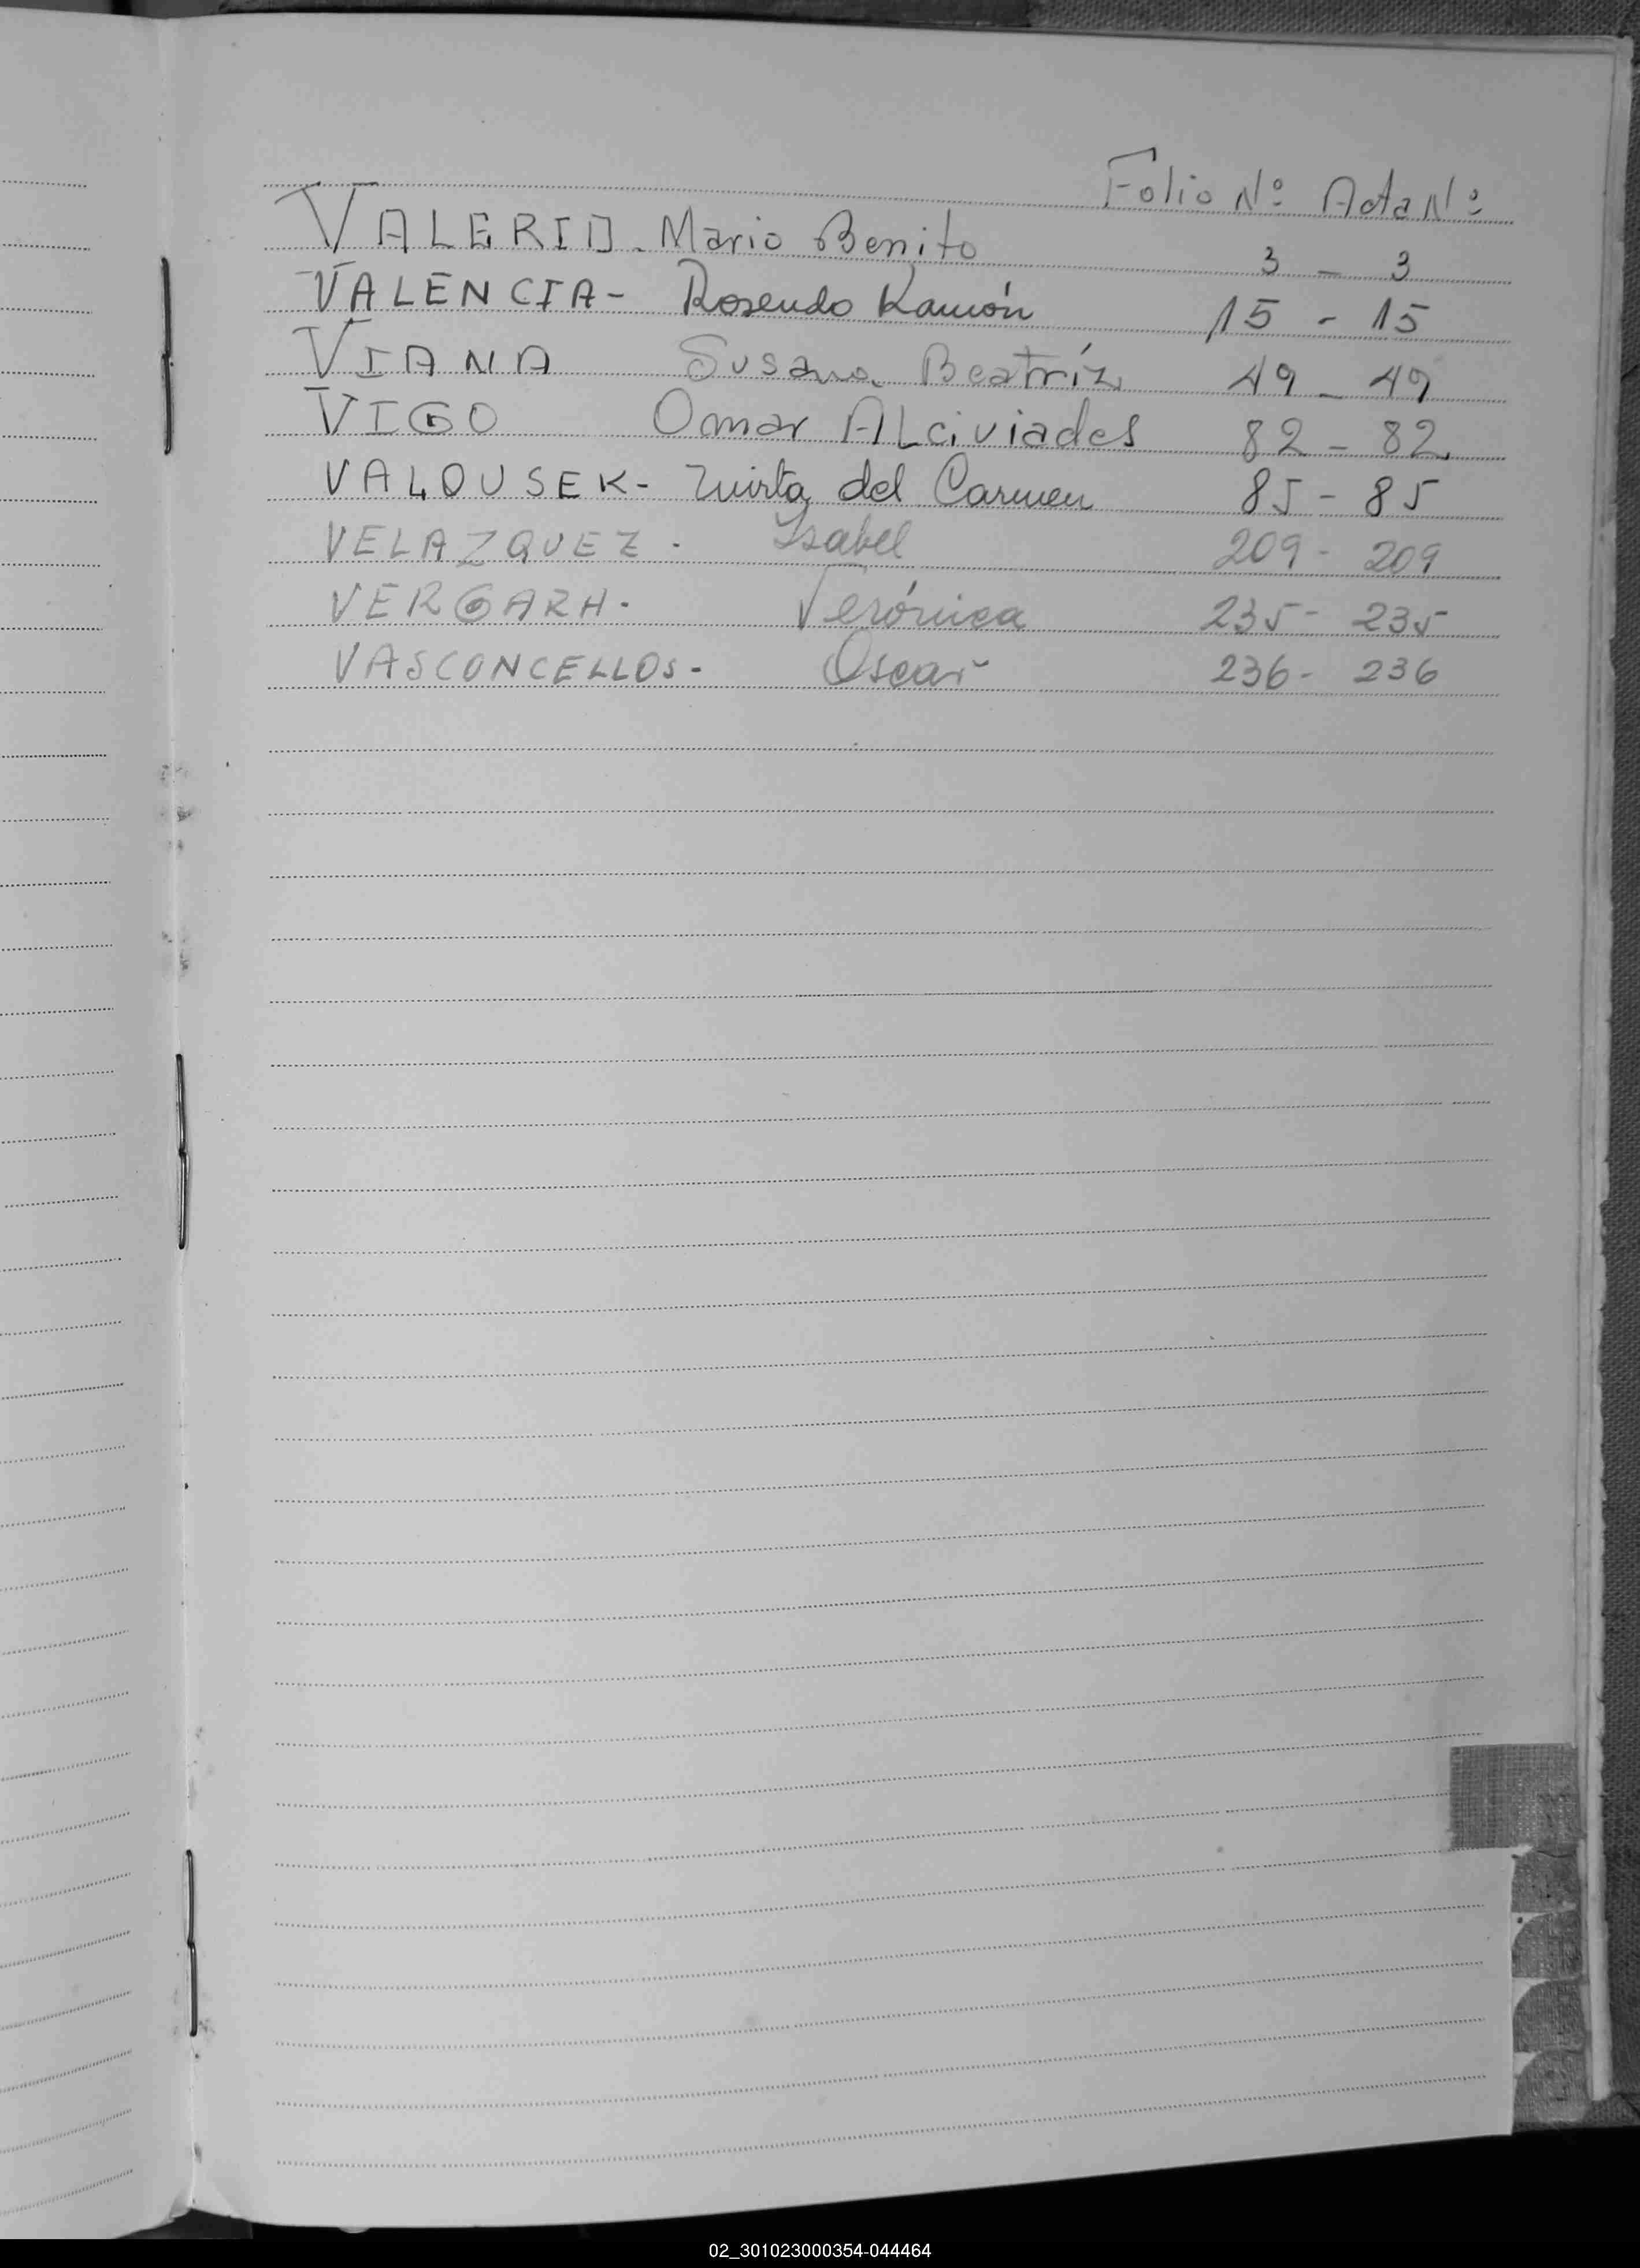 Folio Nº Acta Nº
VALERIO. Mario Benito 3 - 3
VALENCIA - Rosendo Ramón 15 - 15
VIANA Susana Beatríz 49 - 49
VIGO Omar ALciviades 82 - 82
VALOUSEK - Mirta del Carmen 85 - 85
VELAZQUEZ - Isabel 209 - 209
VERGARA - Verónica 235 - 235
VASCONCELLOS - Oscar 236 - 236
02_301023000354-044464